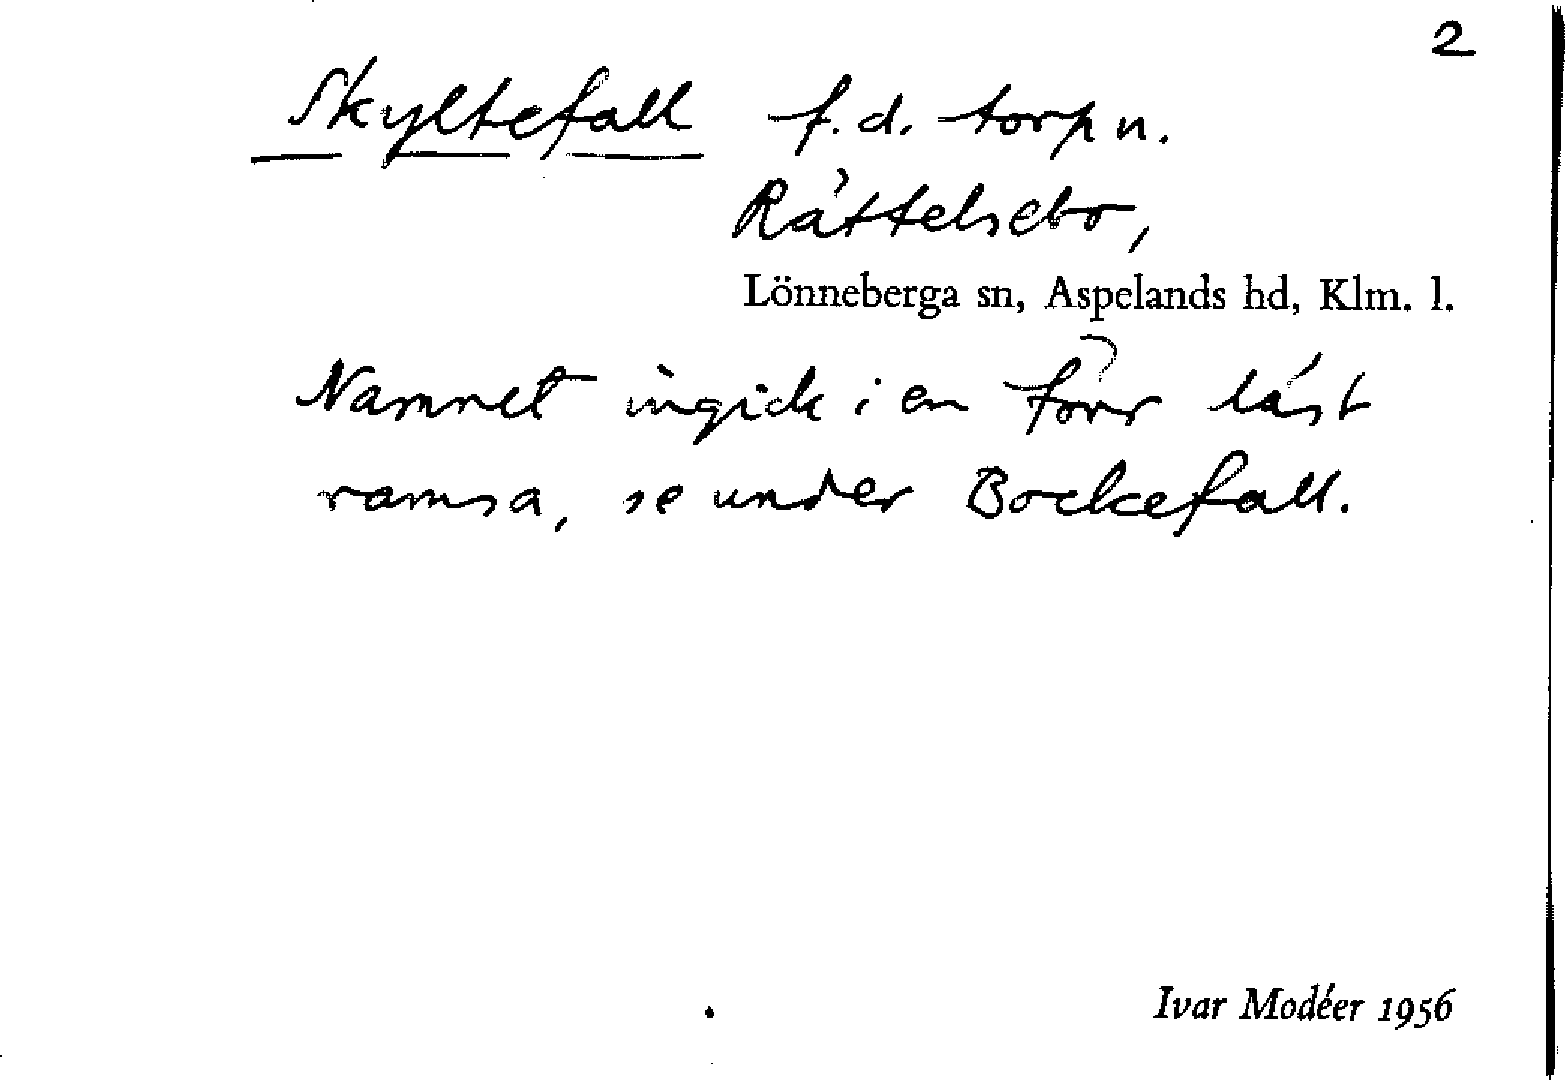 2
Skyltefall f.d. torp u.
Rättelsebo,
Lönneberga sn, Aspelands hd, Klm. l.
Namnet ingick i en förr läst
ramsa, se under Bockefall.
Ivar Modéer 1956